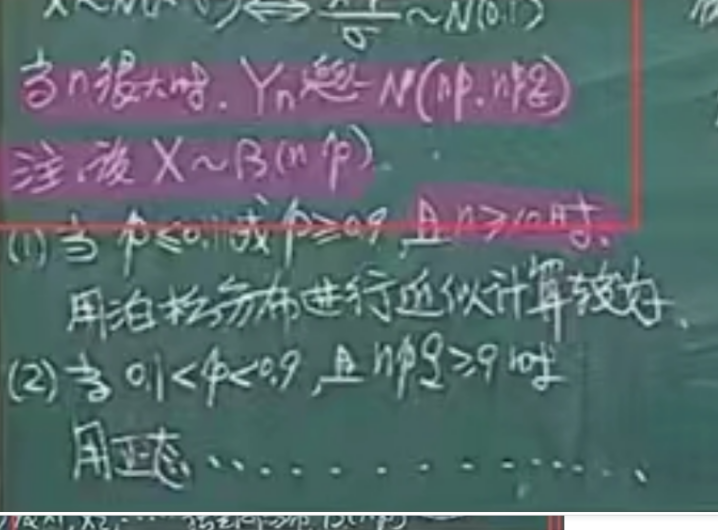 ~N(0.1)
当n很大时. Yn N(np.npq)
注.设 X~B(n p)
(1)当 p≤0.1或p≥0.9,且n≥10时.
用泊松分布进行近似计算较好.
(2)当 0.1<p<0.9,且npq≥9时
用正态..............